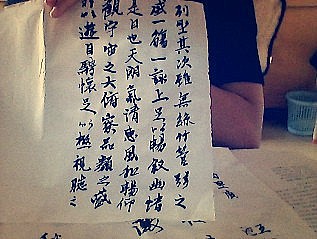 列坐其次雖無絲竹管弦之
盛一觴一詠上足以暢敘幽情
是日也天朗氣清惠風和暢仰
觀宇宙之大俯察品類之盛
所以遊目騁懷足以極視聽之